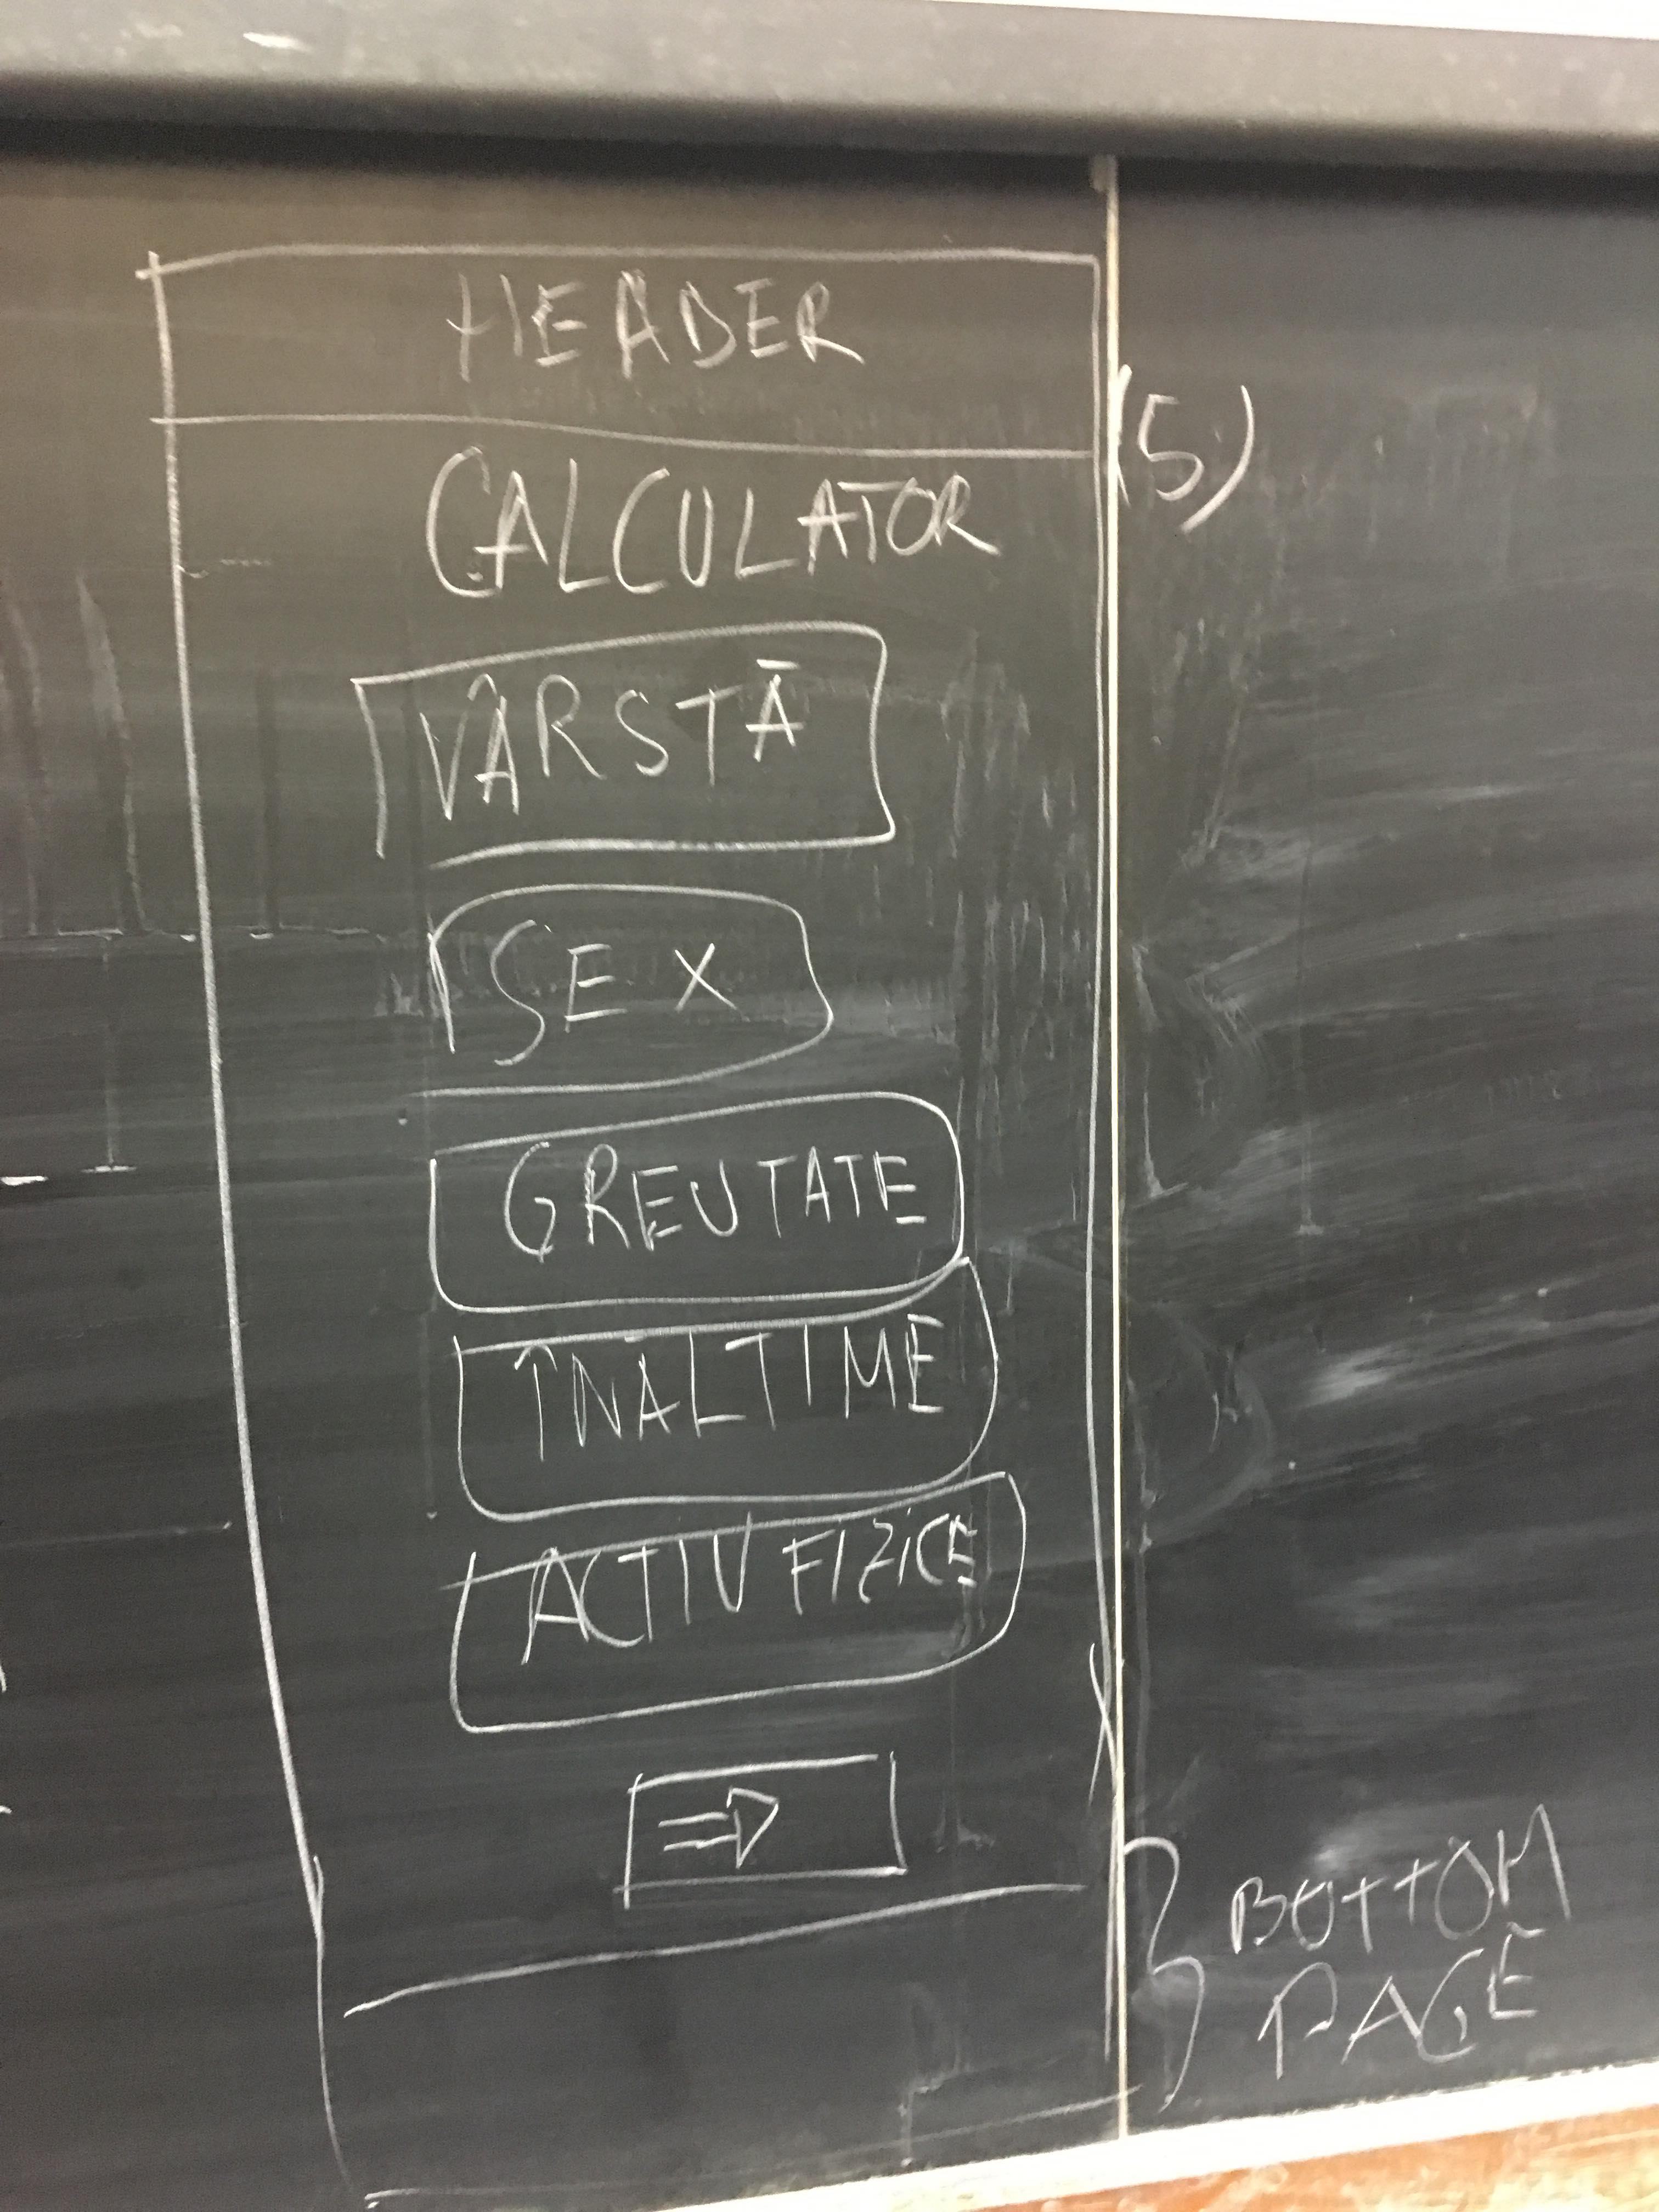 HEADER
(5)
CALCULATOR
VÂRSTĂ
SEX
GREUTATE
ÎNALTIME
ACTIV FIZICE
⇒
BOTTOM
PAGE